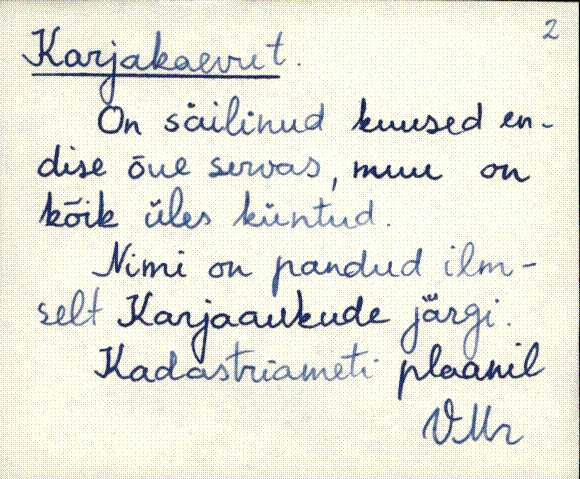 2
Karjakaevut.
On säilinud kuused en-
dise õue servas, muu on
kõik üles küntud.
Nimi on pandud ilm-
selt Karjaaukude järgi.
Kadastriameti plaanil